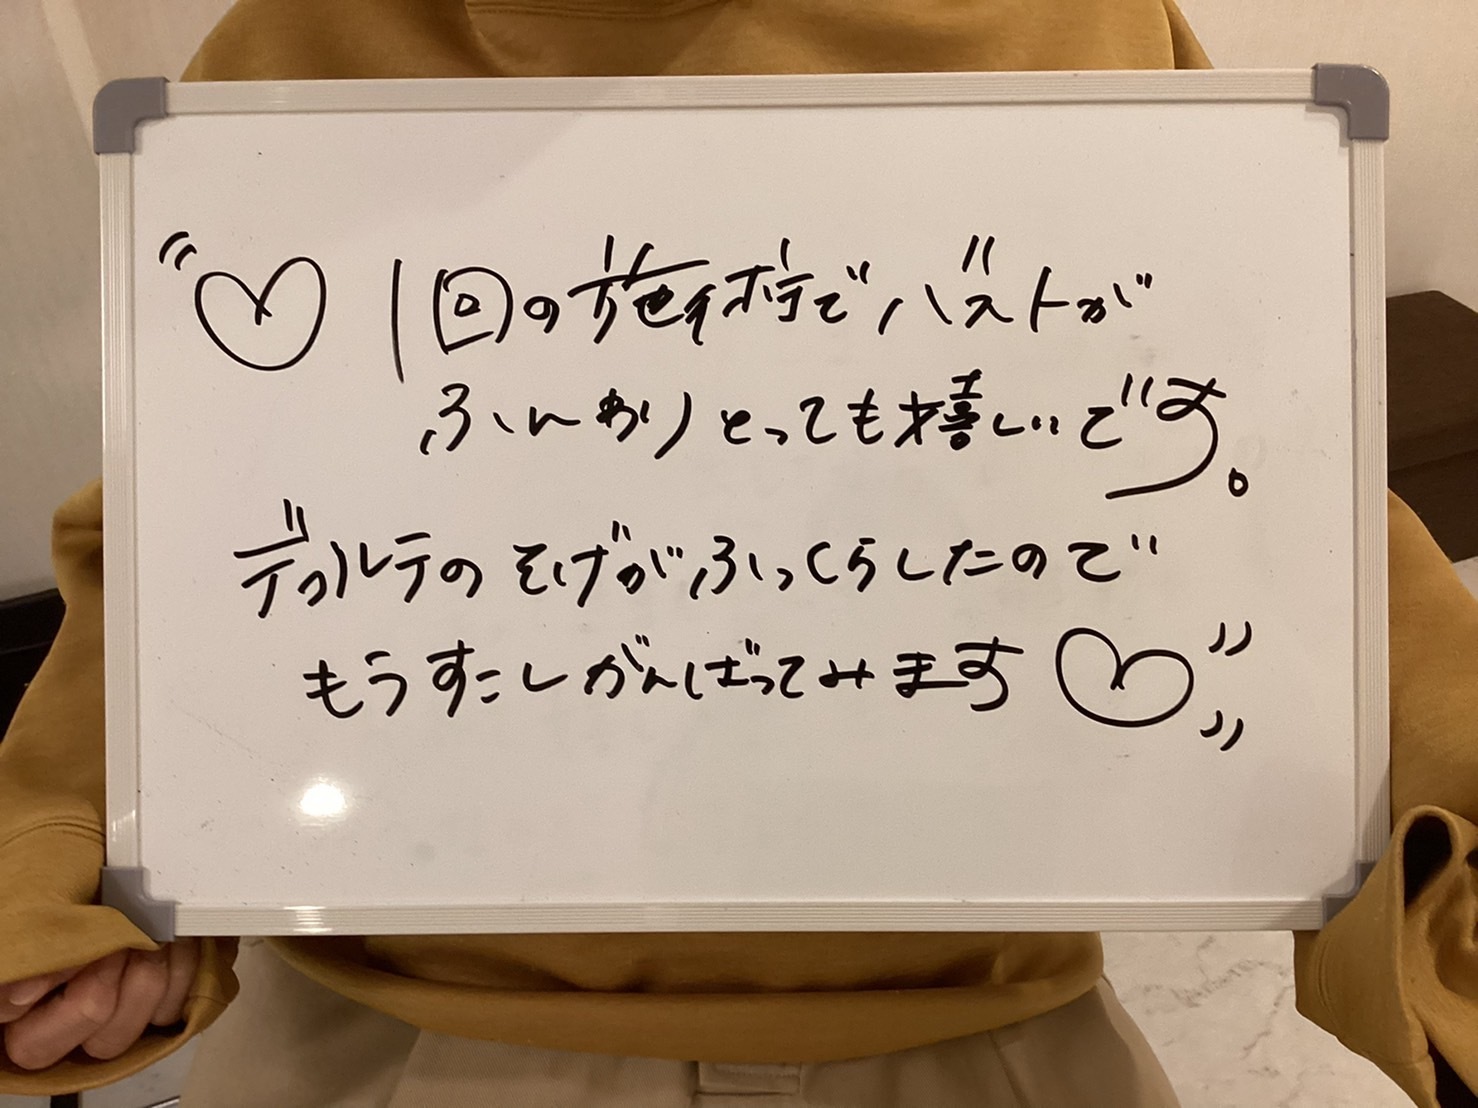 ♡ 1回の施術でバストが
ふんわりとっても嬉しいです。
デコルテのそげがふっくらしたので
もうすこしがんばってみます♡